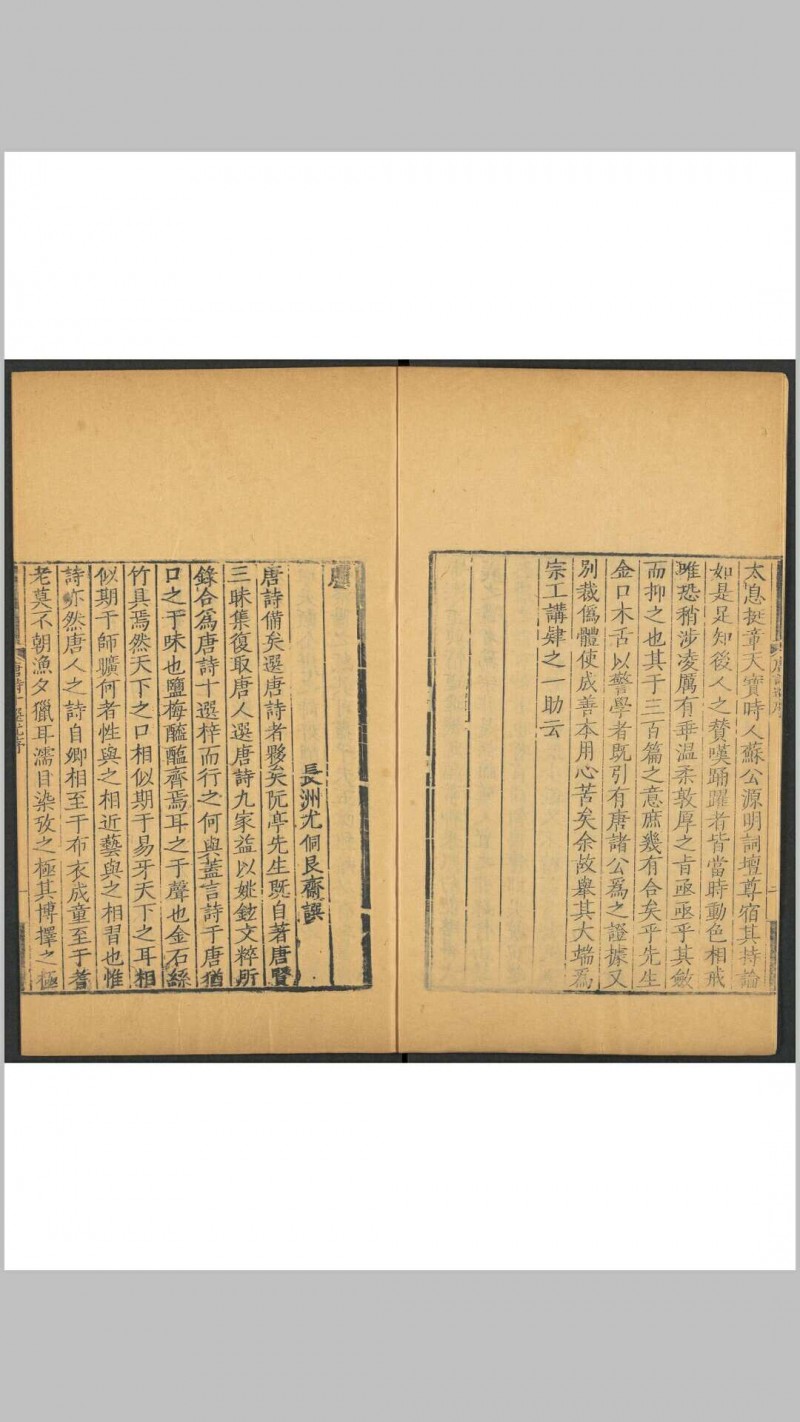 太息挺章天寶時人蘇公源明詞壇尊宿其持論
如是足知後人之賛嘆踊躍者皆當時動色相戒
唯恐稍涉凌厲有乖温柔敦厚之肯亟亟乎其斂
而抑之也其于三百篇之意庶幾有合矣乎先生
金口木舌以警學者既引有唐諸公爲之證據又
别裁僞體使成善本用心苦矣余故舉其大端爲
宗工講肄之一助云
唐
長洲尤侗艮齋譔
唐詩備矣選唐詩者夥矣阮亭先生既自著唐賢
三昧集復取唐人選唐詩九家益以姚鉉文粹所
錄合爲唐詩十選梓而行之何與蓋言詩于唐猶
口之于味也鹽梅醯醢齊焉耳之于聲也金石絲
竹具焉然天下之口相似期于易牙天下之耳相
似期于師曠何者性與之相近藝與之相習也惟
詩亦然唐人之詩自卿相至于布衣成童至于耆
老莫不朝漁夕獵耳濡目染攷之極其博擇之極